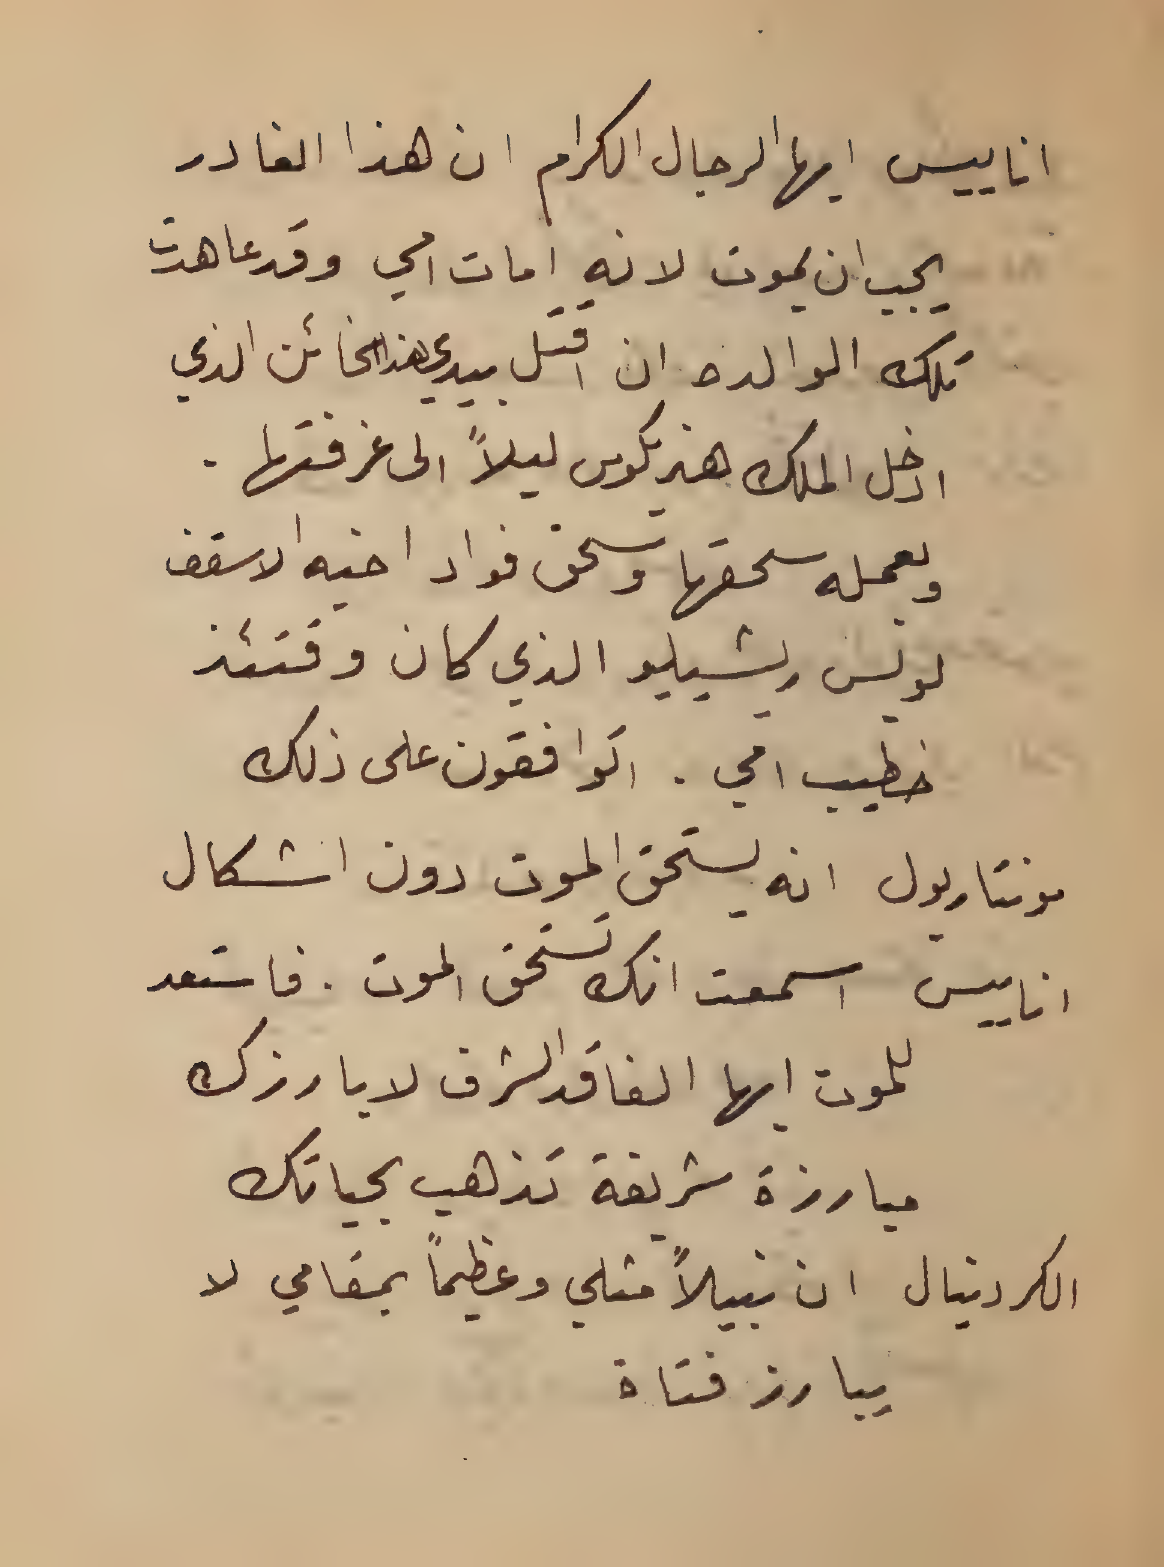 اناييس ايها الرجال الكرام ان هذا الغادر
يجب ان يموت لانه امات امي وقد عاهدت
تلك الوالده ان اقتل بيدي هذا الخائن الذي
ادخل الملك هنريكوس ليلاً الى غرفتها .
وبعمله سحقها وسحق فواد اخيه الاسقف
لونس ريشيليو الذي كان وقتئذ
خطيب امي . اتوافقون على ذلك
مونتاريول انه يستحق الموت دون اشكال
اناييس اسمعت انك تستحق الموت . فاستعد
للموت ايها الفاقد الشرف لابارزك
مبارزة شريفة تذهب بحياتك
الكردينال ان نبيلاً مثلي وعظيماً بمقامي لا
يبارز فتاة